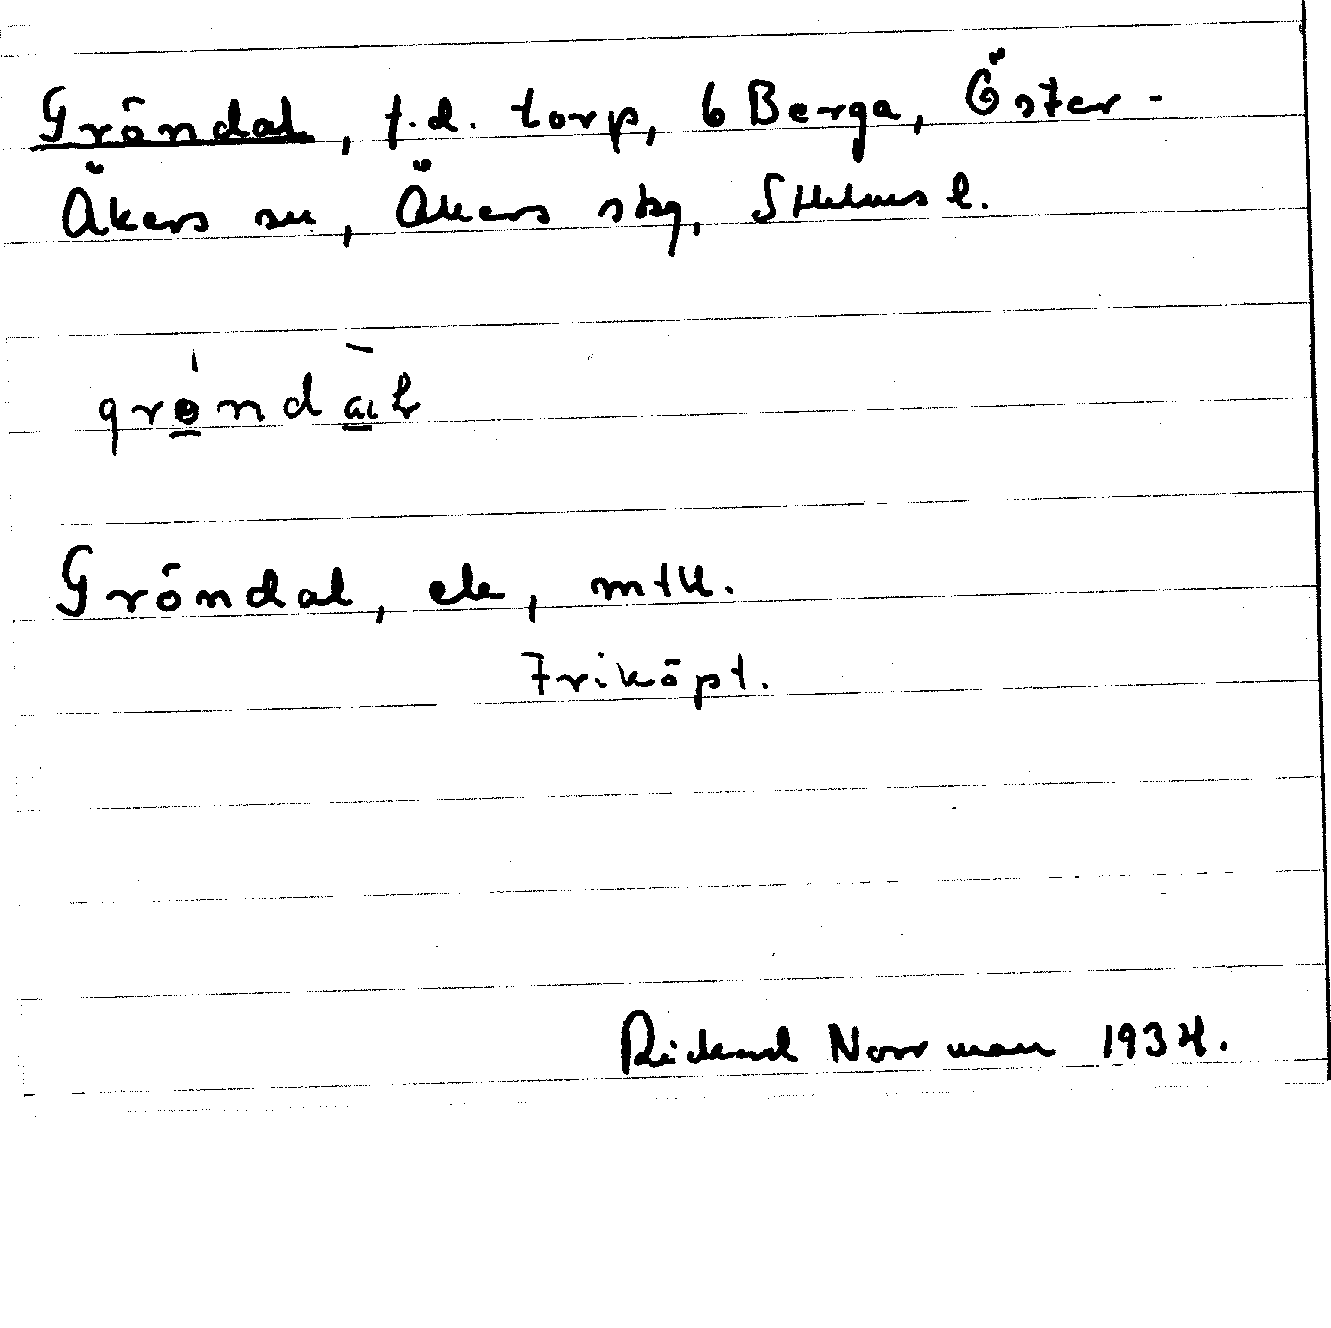 Gröndal, f.d. torp, 6 Berga, Öster-
Åkers sn, Åkers skg, Sthlms l.
grøndal
Gröndal, ele, mtll.
Friköpt.
Rickard Norrman 1934.